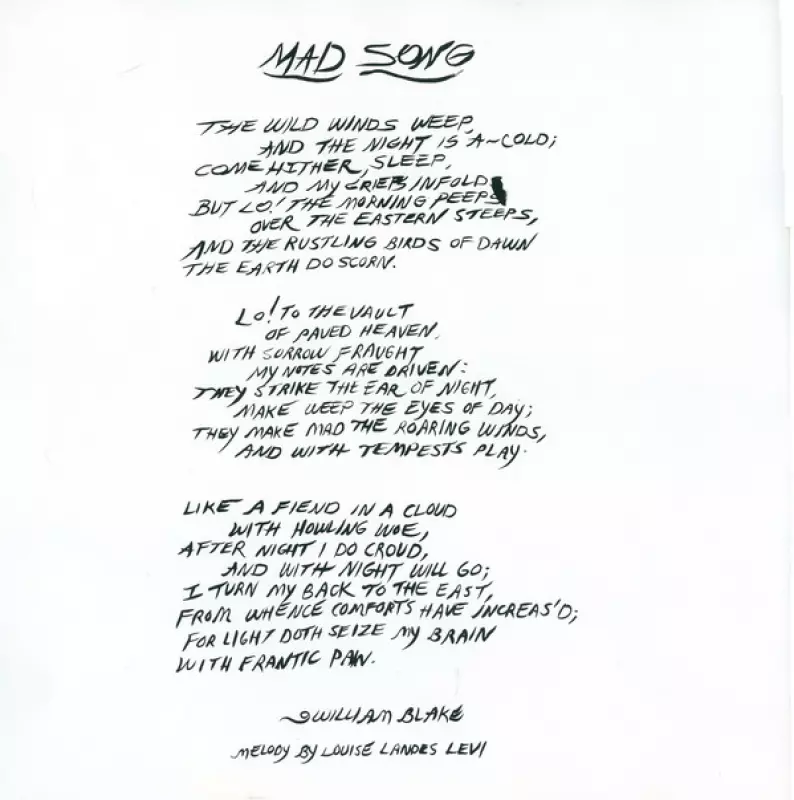 MAD SONG
THE WILD WINDS WEEP,
AND THE NIGHT IS A-COLD;
COME HITHER, SLEEP,
AND MY GRIEFS INFOLD
BUT LO! THE MORNING PEEPS
OVER THE EASTERN STEEPS,
AND THE RUSTLING BIRDS OF DAWN
THE EARTH DO SCORN.
LO! TO THE VAULT
OF PAVED HEAVEN,
WITH SORROW FRAUGHT
MY NOTES ARE DRIVEN:
THEY STRIKE THE EAR OF NIGHT,
MAKE WEEP THE EYES OF DAY;
THEY MAKE MAD THE ROARING WINDS,
AND WITH TEMPESTS PLAY.
LIKE A FIEND IN A CLOUD
WITH HOWLING WOE,
AFTER NIGHT I DO CROUD,
AND WITH NIGHT WILL GO;
I TURN MY BACK TO THE EAST,
FROM WHENCE COMFORTS HAVE INCREAS'D;
FOR LIGHT DOTH SEIZE MY BRAIN
WITH FRANTIC PAIN.
~WILLIAM BLAKE
MELODY BY LOUISE LANDES LEVI